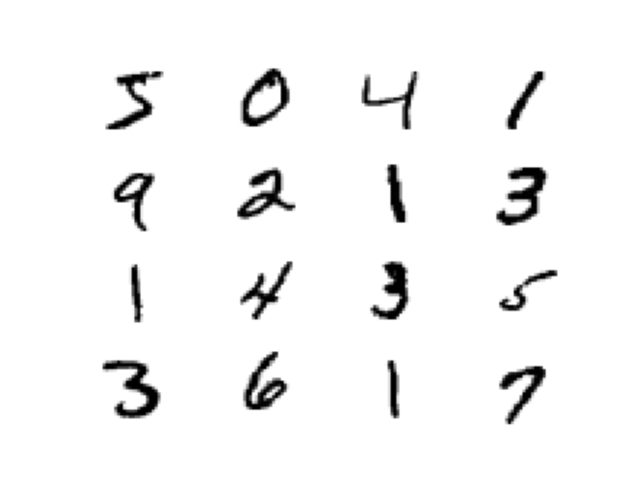 5 0 4 1
9 2 1 3
1 4 3 5
3 6 1 7